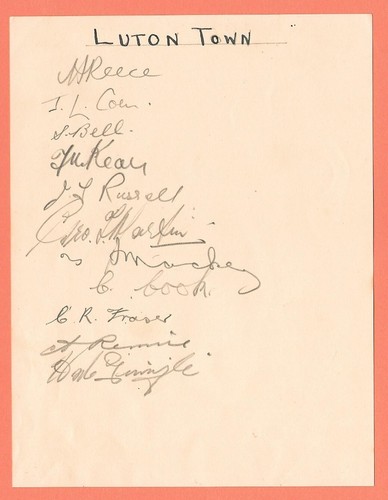 LUTON TOWN
Reece
T. L. Coen.
S. Bell.
Kean
J L Russell
Geo. Martin
T Mackey
C. Cook.
C. R. Fraser
A Rennie